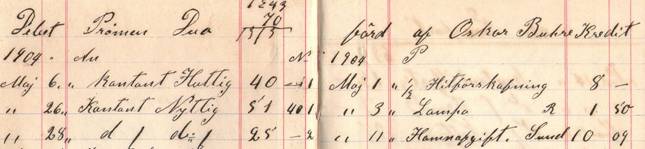 1243
70
Debet Prömen Dua 1313 förd af Oskar Buhre Kredit
1904. An N. 1904 P
Maj 6. „ Kontant Hultig 40 — 1 Maj 1 „ ½ Hitförskapning 8 —
„ 26 „ Kontant Nyttig 51 40 1 „ 3 „ Lampa R 1 50
„ 28 „ d / d:o / 25 — 2 „ 11 „ Hamnafgift. Sund 10 09